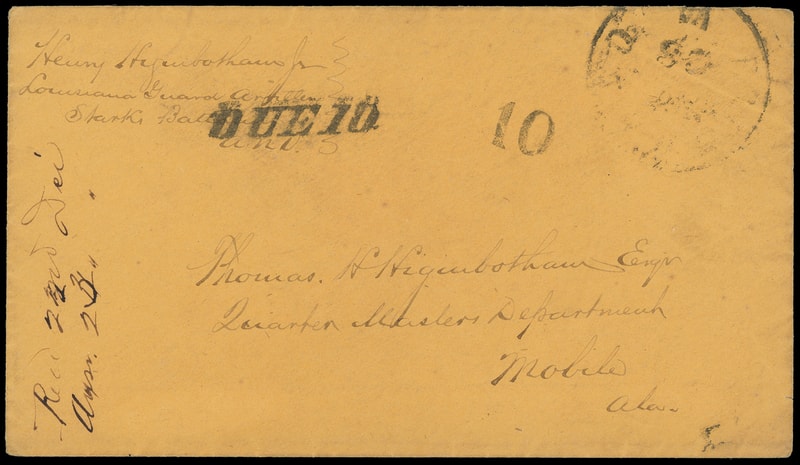 Henry Higinbotham Jr
Louisiana Guard Artillery
Starks Batt
A N V.
DUE 10
10
Thomas. H Higinbotham Esqr
Quarter Masters Department
Mobile
Ala.
Recd 22nd